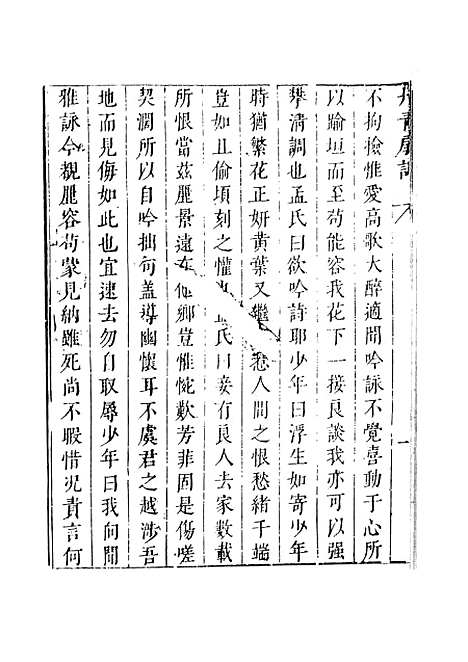 不拘撿惟愛高歌大醉適聞吟詠不覺喜動于心所
以踰垣而至苟能容我花下一接良談我亦可以强
攀清調也孟氏曰欲吟詩耶少年曰浮生如寄少年
時猶繁花正妍黃葉又繼人間之恨愁緒千端
豈如且偷頃刻之懽氏曰妾有良人去家數載
所恨當茲麗景遠在他鄉豈惟惋歎芳菲固是傷嗟
契濶所以自吟拙句盖導幽懷耳不虞君之越涉吾
地而見侮如此也宜速去勿自取辱少年曰我向聞
雅詠今覩麗容苟蒙見納雖死尚不暇惜况責言何